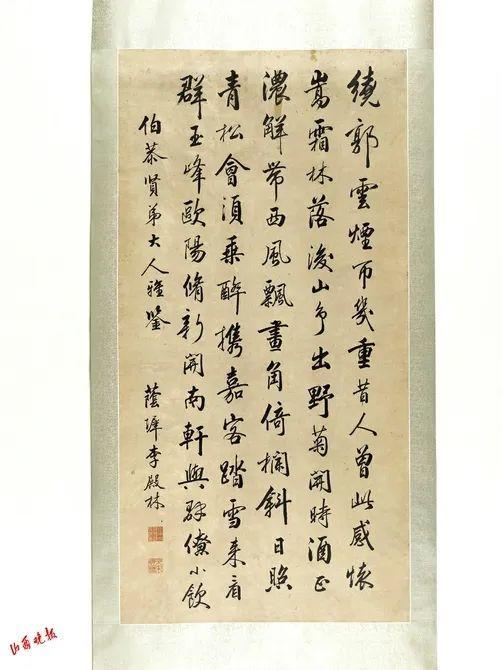 繞郭雲煙帀幾重昔人曾此感懷
嵩霜林落後山爭出野菊開時酒正
濃解帶西風飄畫角倚欄斜日照
青松會須乘醉携嘉客踏雪來看
群玉峰歐陽脩新開南軒與群僚小飲
伯恭賢弟大人雅鑒
蔭墀李殿林
山西晚报